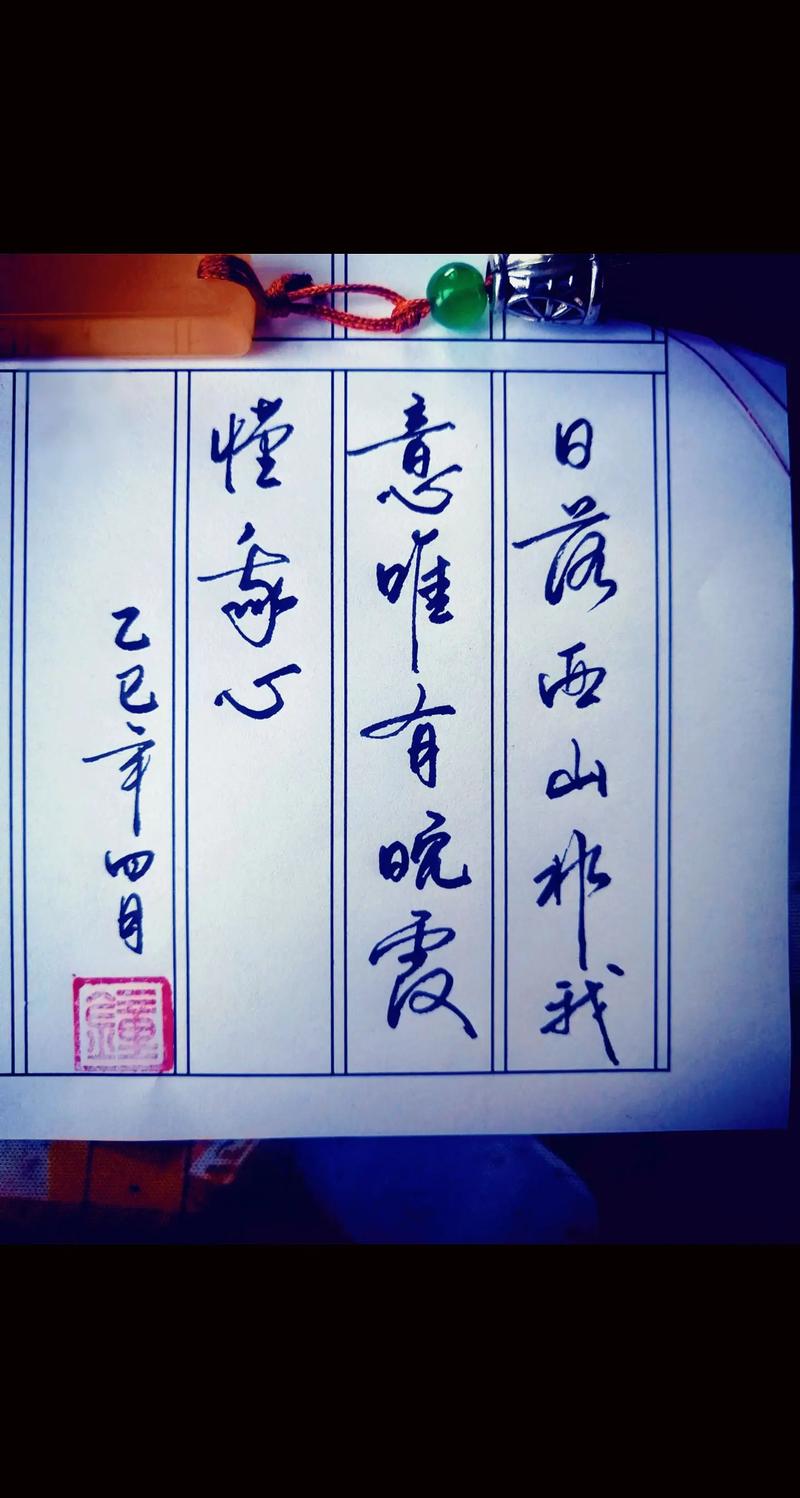 日落西山非我
意唯有晚霞
懂我心
乙巳年四月
鐘